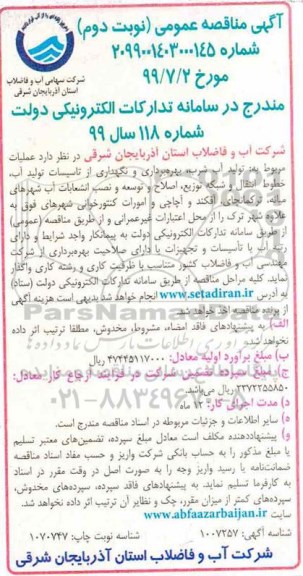 آگهی مناقصه عمومی (نوبت دوم)
شماره ۲۰۹۹۰۰۱۴۰۳۰۰۰۱۴۵
مورخ ۹۹/۷/۲
شرکت سهامی آب و فاضلاب
استان آذربایجان شرقی
مندرج در سامانه تدارکات الکترونیکی دولت
شماره ۱۱۸ سال ۹۹
شرکت آب و فاضلاب استان آذربایجان شرقی در نظر دارد عملیات
مربوط به تولید آب شرب، بهره‌برداری و نگهداری از تاسیسات تولید آب،
خطوط انتقال و شبکه توزیع، اصلاح و توسعه و نصب انشعابات آب شهرهای
میانه، ترکمانچای، آقکند و آچاچی و آمورات کنتورخوانی شهرهای فوق به
علاوه شهر ترک را از محل اعتبارات غیرعمرانی و از طریق مناقصه (عمومی)
از طریق سامانه تدارکات الکترونیکی دولت به پیمانکار واجد شرایط و دارای
رتبه آب یا تأسیسات و تجهیزات یا دارای صلاحیت بهره‌برداری از شرکت
مهندسی آب و فاضلاب کشور متناسب با ظرفیت کاری و رشته کاری واگذار
نماید. کلیه مراحل مناقصه از طریق سامانه تدارکات الکترونیکی دولت (ستاد)
به آدرس www.setadiran.ir انجام خواهد شد بدیهی است هزینه آگهی
از برنده مناقصه اخذ خواهد شد.
الف) به پیشنهادهای فاقد امضاء، مشروط، مخدوش، مطلقا ترتیب اثر داده
نخواهد شد.
ب) مبلغ برآورد اولیه معادل: ۴۷۴۴۵۱۱۷۰۰۰ ریال
ج) مبلغ سپرده تضمین شرکت در فرآیند ارجاع کار معادل:
۲۳۷۲۲۵۵۸۵۰ ریال می‌باشد.
د) مدت اجرای کار: ۱۲ ماه
ه) سایر اطلاعات و جزئیات مربوطه در اسناد مناقصه مندرج است.
و) پیشنهاددهنده مکلف است معادل مبلغ سپرده، تضمین‌های معتبر تسلیم
یا مبلغ مذکور را به حساب بانکی شرکت واریز و حسب مفاد اسناد مناقصه
ضمانت‌نامه یا رسید واریز وجه را به صورت اصل در وقت مقرر در اسناد
به کارفرما تسلیم نماید. به پیشنهادهای فاقد سپرده، سپرده‌های مخدوش،
سپرده‌های کمتر از میزان مقرر، چک و نظایر آن ترتیب اثر داده نخواهد شد.
سایت www.abfaazarbaijan.ir
شناسه آگهی: ۱۰۰۷۲۵۷ شناسه نوبت چاپ: ۱۰۷۰۷۴۷
شرکت آب و فاضلاب استان آذربایجان شرقی